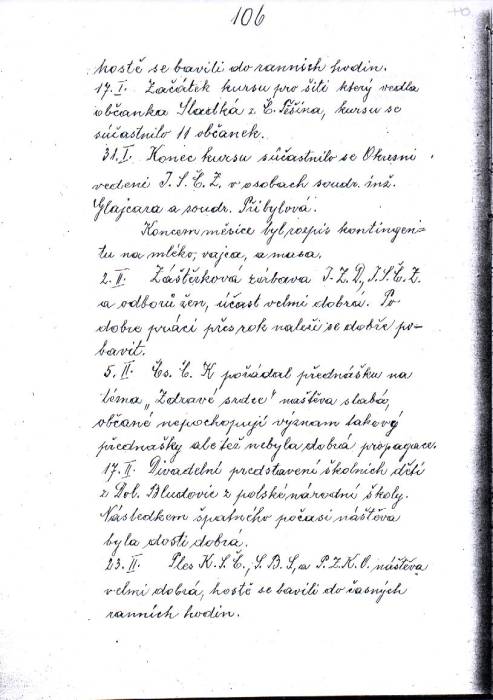 106
hostě se bavili do ranních hodin.
17. I. Začátek kursu pro šití který vedla
občanka Sladká z Č. Těšína, kursu se
súčastnilo 11 občanek.
31. I. Konec kursu súčastnilo se Okresní
vedení J. S. Č. Ž. v osobach soudr. inž.
Glajcara a soudr. Přibylová.
Koncem měsíce byl rozpis kontingen-
tu na mléko, vajca, a masa.
2. II. Zástěrková zábava J. Z. D., J. S. Č. Ž.
a odborů žen, účast velmi dobrá. Po
dobré práci přes rok naleší se dobře po-
bavit.
5. II. Čs. Č. K pořádal přednášku na
téma „Zdravé srdce" náštěva slabá,
občané nepochopují vyznam takový
přednašky ale též nebyla dobrá propagace.
17. II. Divadelní predstavení školních dětí
z Dol. Bludovic z polské národní školy.
Následkem špatného počasi náštěva
byla dosti dobrá.
23. II. Ples K. S. Č., S. B. S, a P. Z. K. O. náštěva
velmi dobrá, hostě se bavili do časných
ranních hodin.